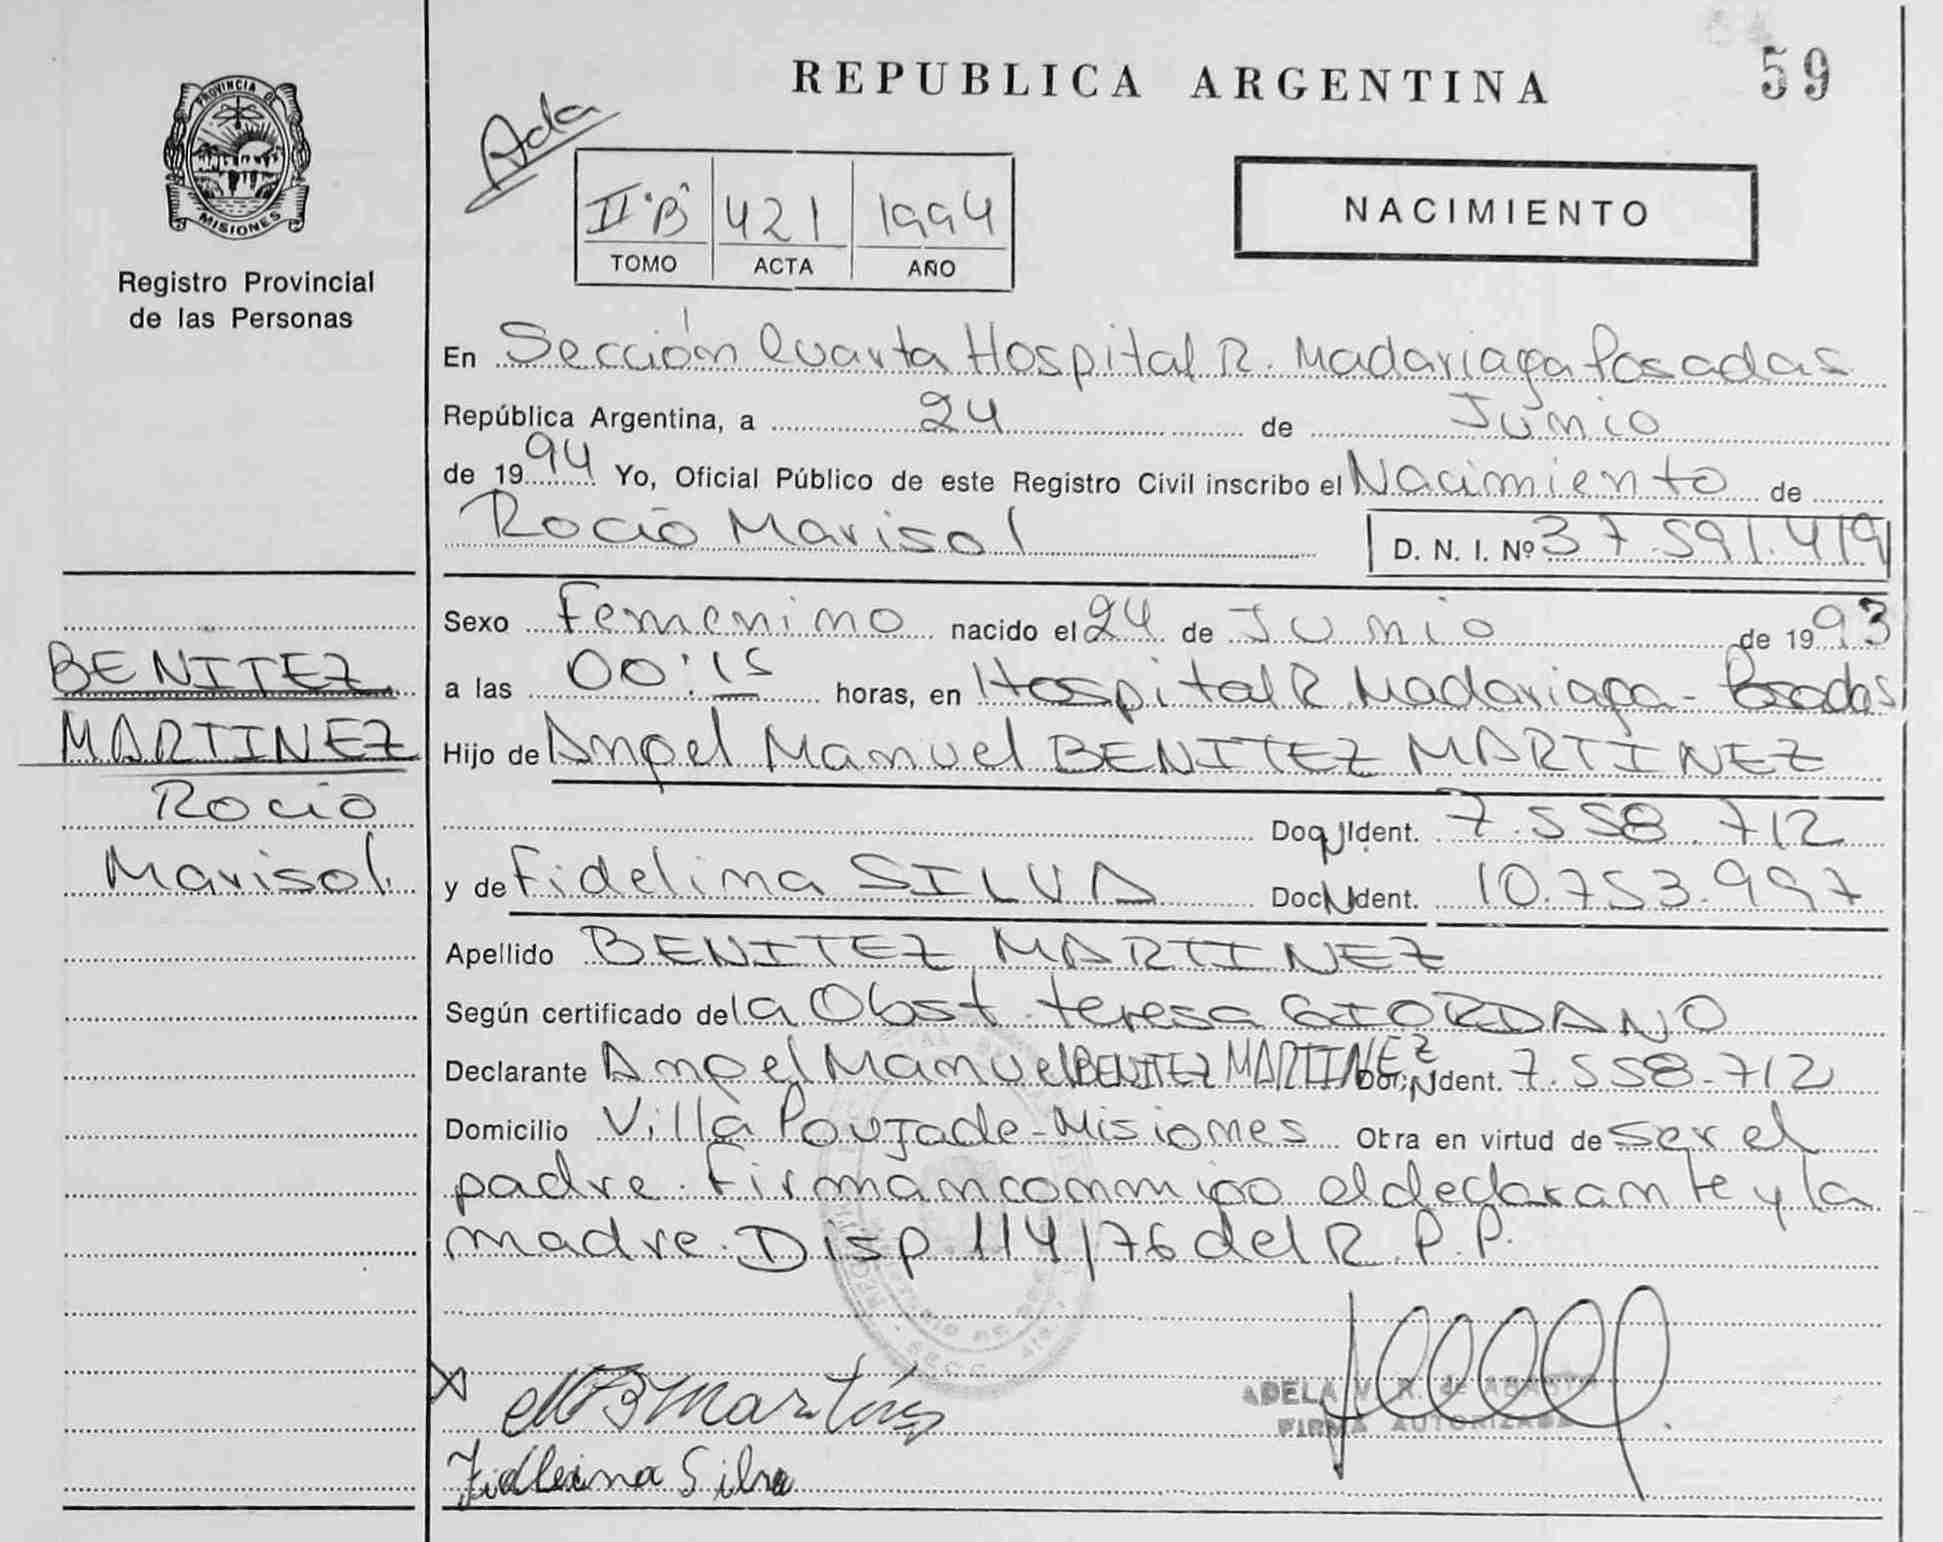 PROVINCIA DE
MISIONES
Registro Provincial
de las Personas
REPUBLICA ARGENTINA
59
Ada
II "B" 421 1994
TOMO ACTA AÑO
NACIMIENTO
En Sección Cuarta Hospital R. Madariaga Posadas
República Argentina, a 24 de Junio
de 1994 Yo, Oficial Público de este Registro Civil inscribo el Nacimiento de
Rocio Marisol D. N. I. Nº 37.591.419
Sexo Femenino nacido el 24 de Junio de 1993
a las 00:15 horas, en Hospital R. Madariaga - Posadas
Hijo de Angel Manuel BENITEZ MARTINEZ
Doc. Ident. 7.558.712
y de Fidelina SILVA Doc. Ident. 10.753.997
Apellido BENITEZ MARTINEZ
Según certificado de la Obst. Teresa GIORDANO
Declarante Angel Manuel BENITEZ MARTINEZ Doc. Ident. 7.558.712
Domicilio Villa Poujade - Misiones Obra en virtud de ser el
padre. Firman conmigo el declarante y la
madre. Disp 114/76 del R.P.P.
BENITEZ
MARTINEZ
Rocio
Marisol
ADELA V. R. de
FIRMA AUTORIZADA
Martínez
Fidleina Silva